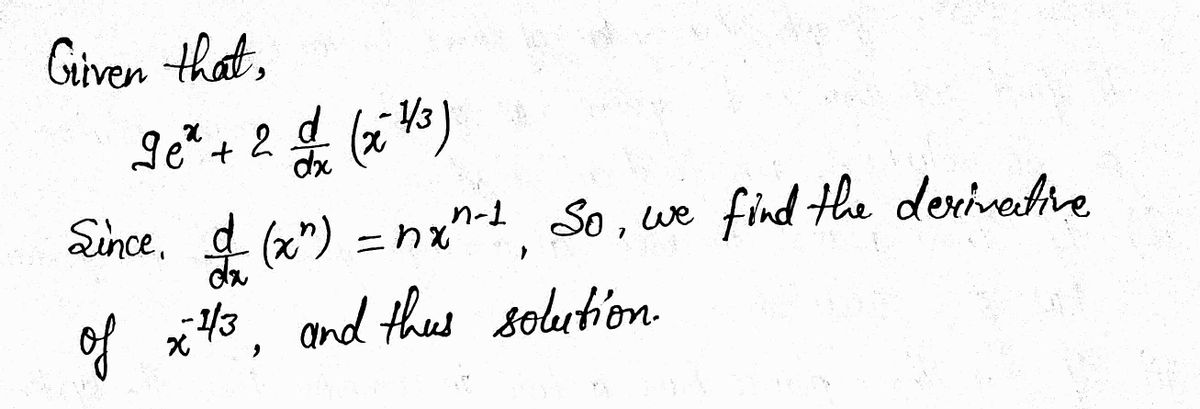 Given that,
9e^x + 2 d/dx (x^-1/3)
Since, d/dx (x^n) = nx^n-1, So, we find the derivative
of x^-1/3, and thus solution.